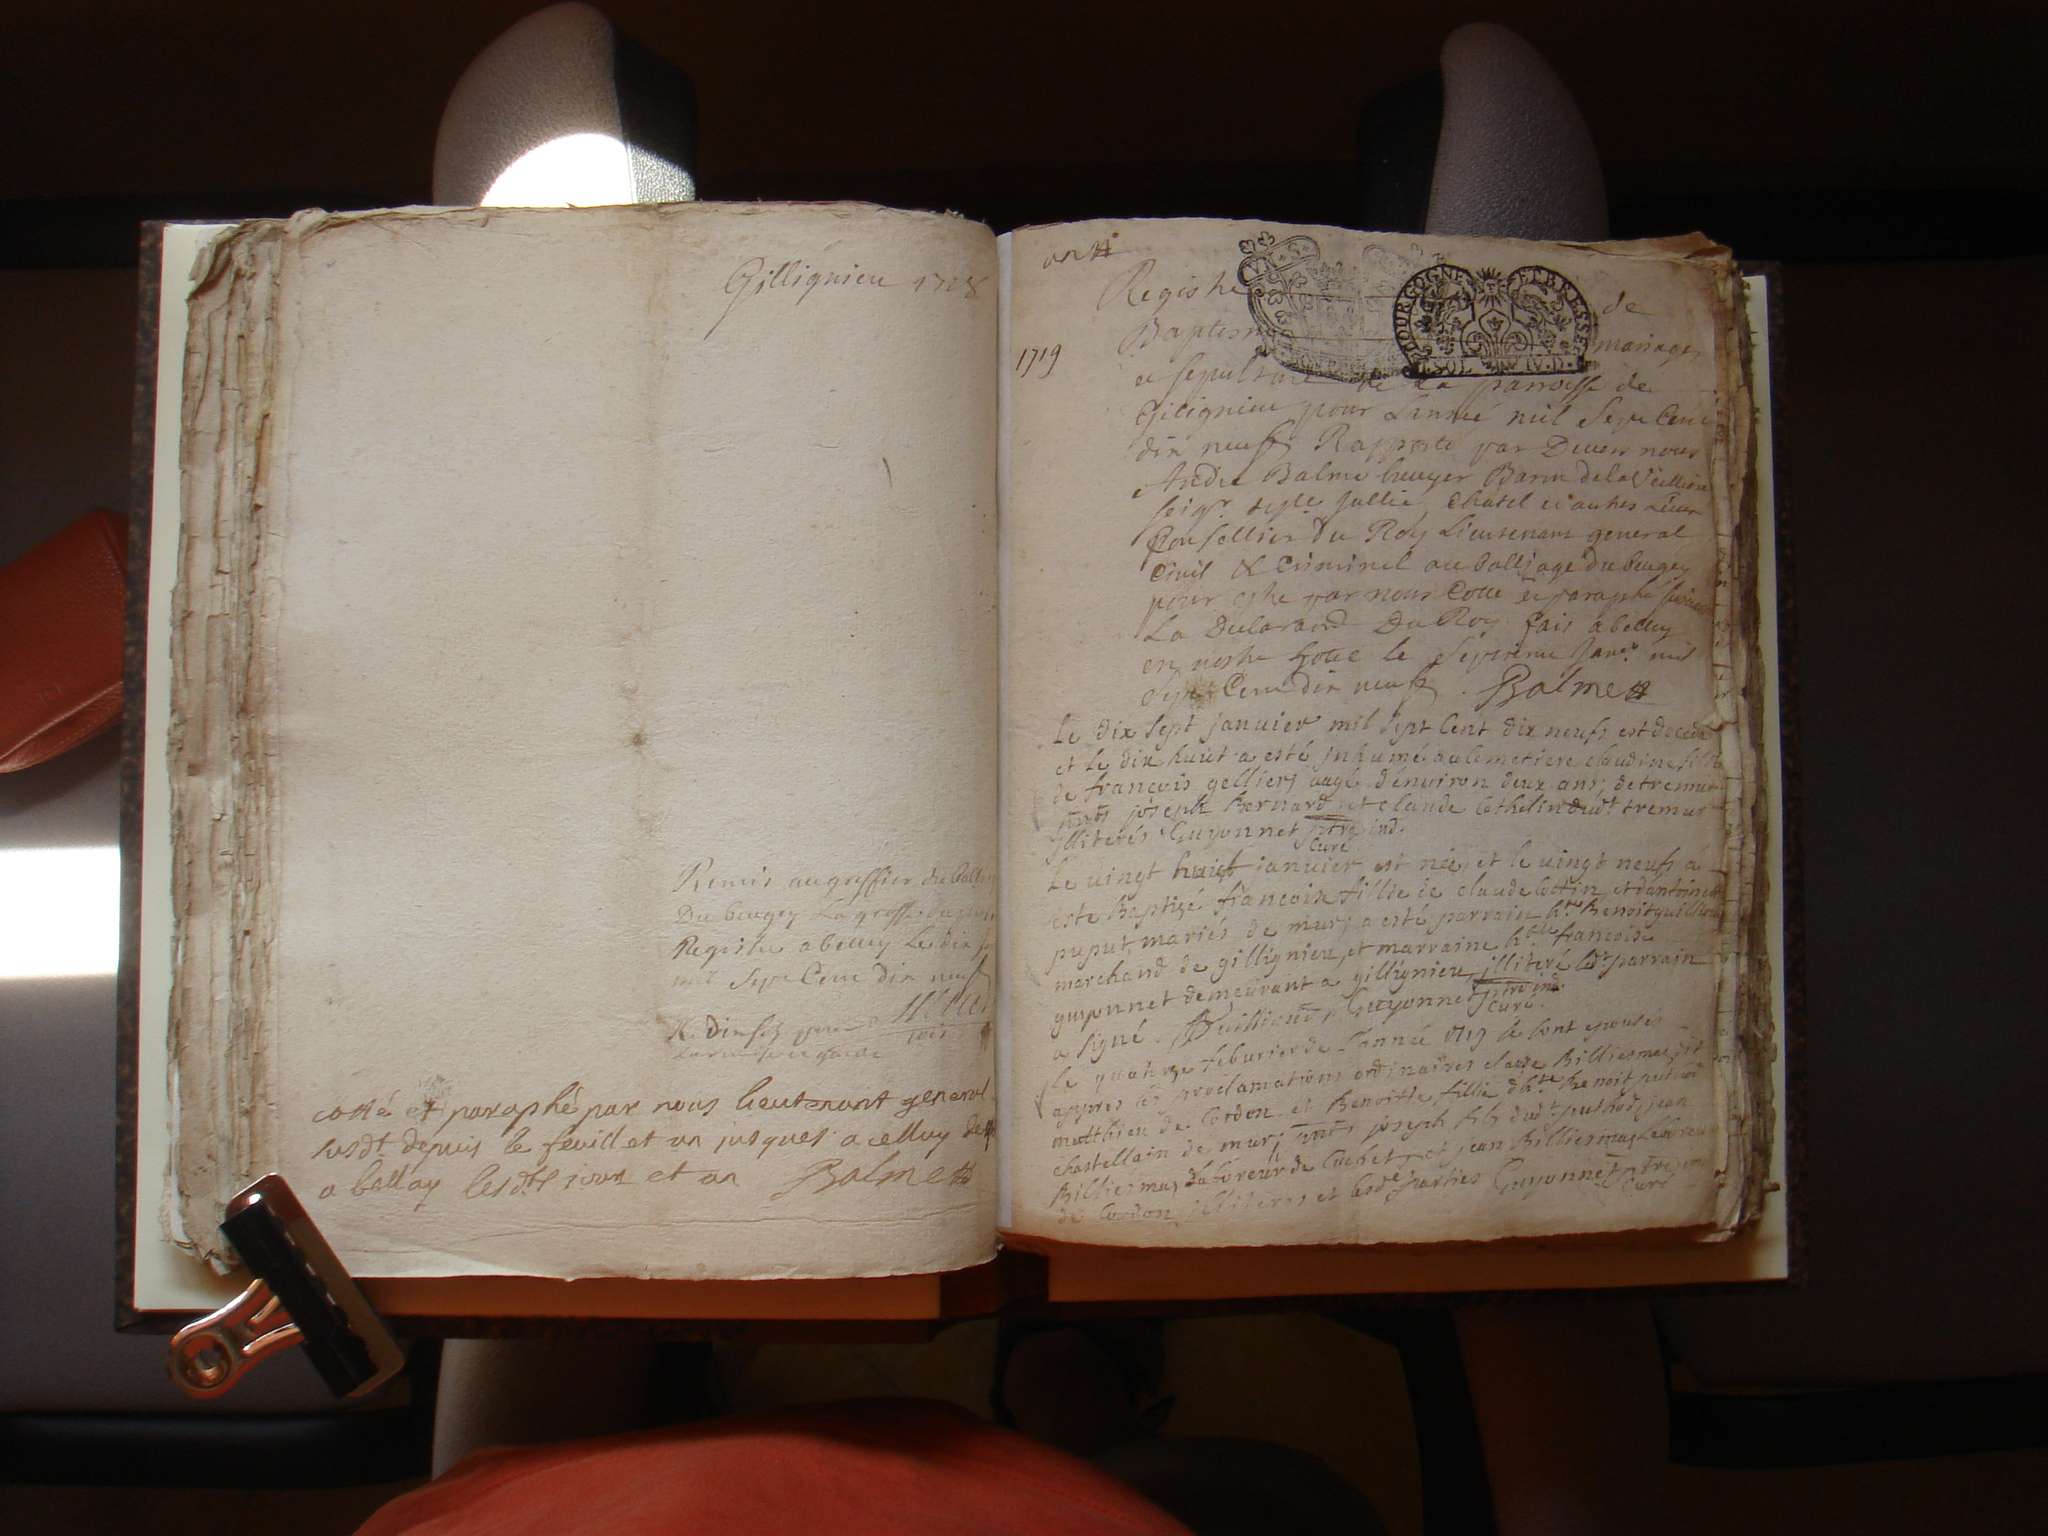 Gillignieu 1718
Remis au greffier du Balliage
Du beugey La grosse du present
Registre a belley Le dix sept
mil Sept Cent dix neuf
cotté et paraphé par nous lieutenant general
susdt. depuis le feuillet un jusques a celluy de
a bellay lesdts jour et an Balme
un
1719
BOURGOGNE ET BRESSE
SOL IV.D.
Registre de
Baptesme mariages
et sepulture de La parroisse de
Gilignieu pour Lannée mil Sept Cent
dix neufs Rapporté par Devers nous
André Balme Escuyer Baron de la
seigr. Jullie, Chatel et autres Lieux
Consellier du Roy Lieutenant general
Civil & Criminel au balliage du beugey
pour estre par nous Cotté et paraphé suivant
La Declarand Du Roy fait a belley
en nostre hotel le septieme Janer. mil
Sept Cent dix neufs. Balme
Le dix sept janvier mil sept Cent dix neufs est decedé
et le dix huit a esté inhumé au Cemetiere claudine fillie
de françois gelliers aagé d'environ deux ans, de tremur
pnts joseph bernard et claude Cothelin dudt tremur
illiterés Guyonnet ptre ind.
Curé
Le vingt huict janvier est née et le vingt neufs a
esté Baptizé françoise fillie de claude Cottin et d'antoinette
puput, mariés de mur; a esté parrain hte. Benoit guillion
marchand de gillignieu et marraine hble francoise
guyonnet demeurant a gillignieu illiteré ledt parrain
a signé. Guillion Guyonnet ptre ind.
Curé.
Le quatorze feburier de l'année 1719 se sont epousés
appres les proclamations ordinaires claude Billiemaz fit
matthieu de Cordon et Benoitte fillie d'hte Benoit puthod
chastellain de mur; pnts joseph fils dudt puthod, jean
Billiemaz laboureur de Cuchet, et jean Billiemaz laboureur
de Cordon illiterés et lesdes parties Guyonnet ptre ind
Curé